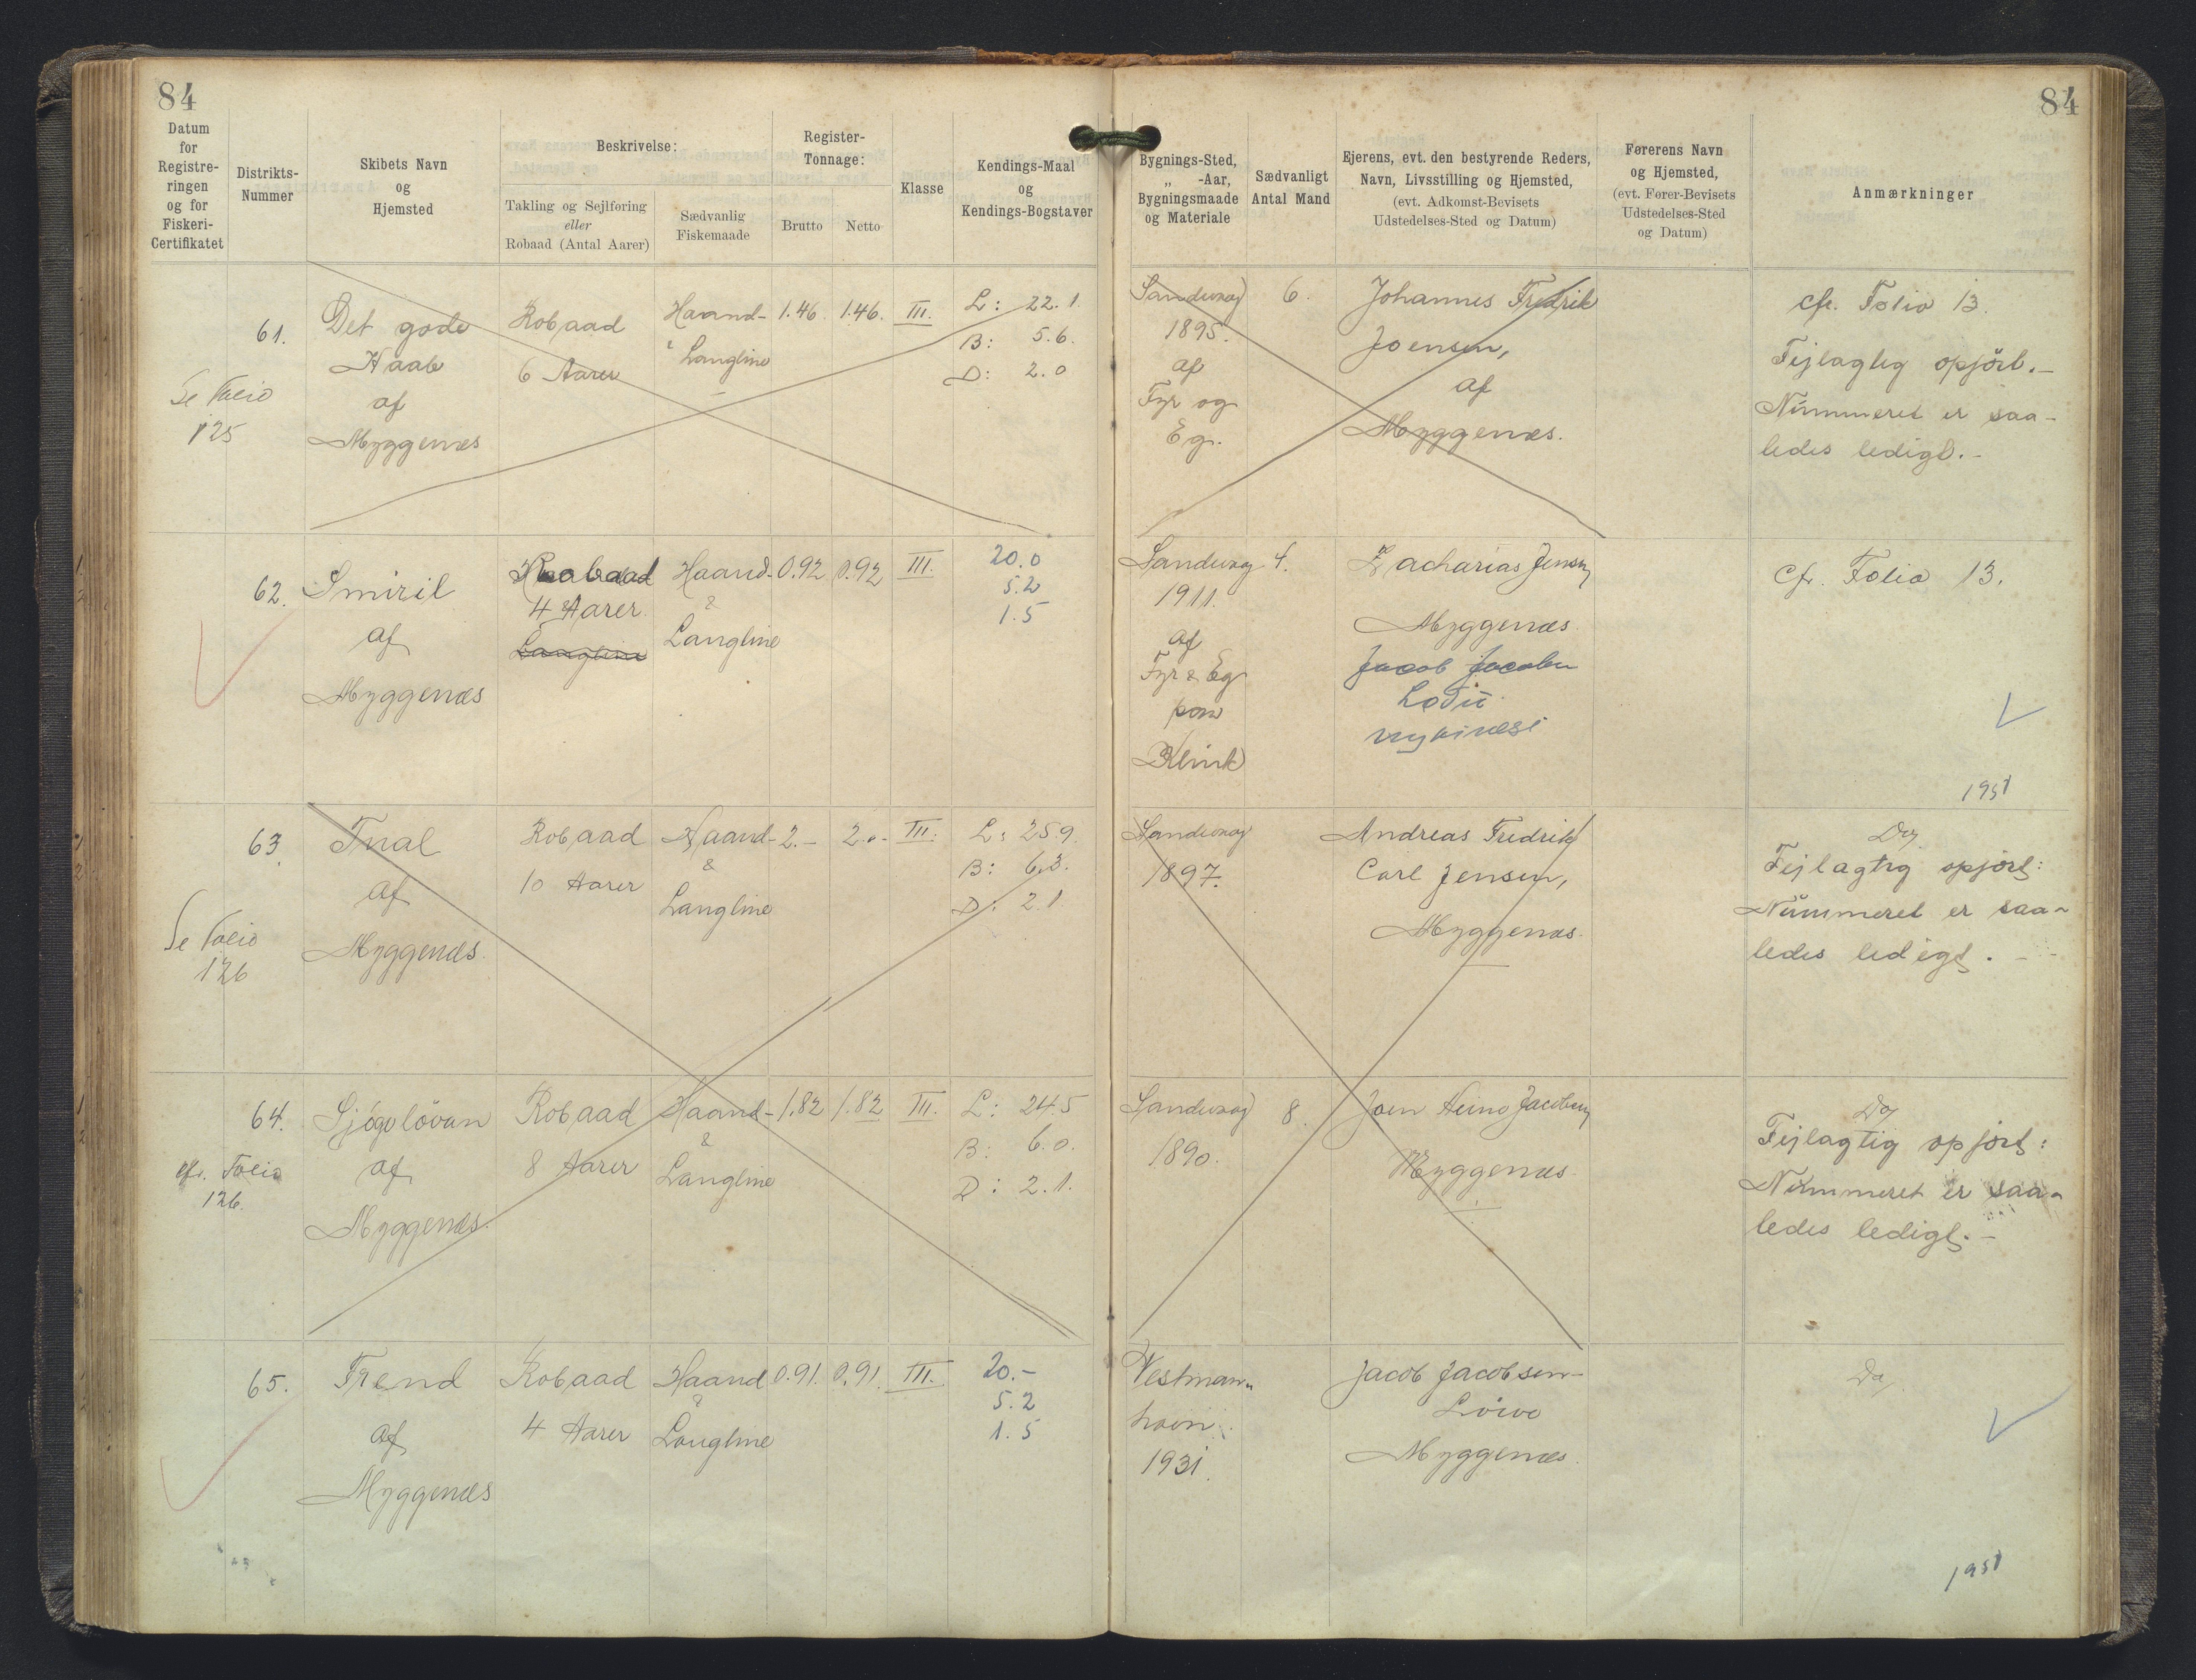 84
84
Datum
for
Registre-
ringen
og for
Fiskeri-
Certifikatet
Distrikts-
Nummer
Skibets Navn
og
Hjemsted
Beskrivelse:
Takling og Sejlføring
eller
Robaad (Antal Aarer)
Sædvanlig
Fiskemaade
Register-
Tonnage:
Brutto
Netto
Klasse
Kendings-Maal
og
Kendings-Bogstaver
Bygnings-Sted,
„ -Aar,
Bygningsmaade
og Materiale
Sædvanligt
Antal Mand
Ejerens, evt. den bestyrende Reders,
Navn, Livsstilling og Hjemsted,
(evt. Adkomst-Bevisets
Udstedelses-Sted og Datum)
Førerens Navn
og Hjemsted,
(evt. Fører-Bevisets
Udstedelses-Sted
og Datum)
Anmærkninger
Se Folio
125
61.
Det gode
Haab
af
Myggenæs
Robaad
6 Aarer
Haand-
& Langline
1.46.
1.46.
III.
L: 22.1
B: 5.6.
D: 2.0
Sandevaag
1895.
af
Fyr og
Eg.
6.
Johannes Fredrik
Joensen,
af
Myggenæs.
cfr. Folio 13.
Fejlagtig opført.-
Nummeret er saa-
ledes ledigt.-
62.
Smiril
af
Myggenæs
Robaad
4 Aarer.
Langline
Haand-
&
Langline
0.92
0.92
III.
20.0
5.2
1.5
Sandevaag
1911.
af
Fyr & Eg
paa
Klink
4.
Zacharias Jensen
Myggenæs.
Jacob Jacobsen
cfr. Folio 13.
1951
63.
Se Folio
126
af
Myggenæs.
Robaad
10 Aarer
Haand-
&
Langline
2.-
2.-
III.
L: 25.9.
B: 6.3.
D: 2.1
Sandevaag
1897.
Andreas Fredrik
Carl Jensen,
Myggenæs.
Do
Fejlagtig opført:
Nummeret er saa-
ledes ledigt.-
64.
cfr. Folio
126.
af
Myggenæs.
Robaad
8 Aarer
Haand-
&
Langline
1.82
1.82
III.
L: 24.5
B: 6.0.
D: 2.1.
Sandevaag
1890.
8.
Joen Heine Jacobsen
Myggenæs.
Do
Fejlagtig opført:
Nummeret er saa-
ledes ledigt.-
65.
Trend
af
Myggenæs
Robaad
4 Aarer
Haand
&
Langline
0.91.
0.91.
III.
20.-
5.2
1.5
Vestman-
havn.
1931.
Jacob Jacobsen-
Myggenæs.
Do
1951